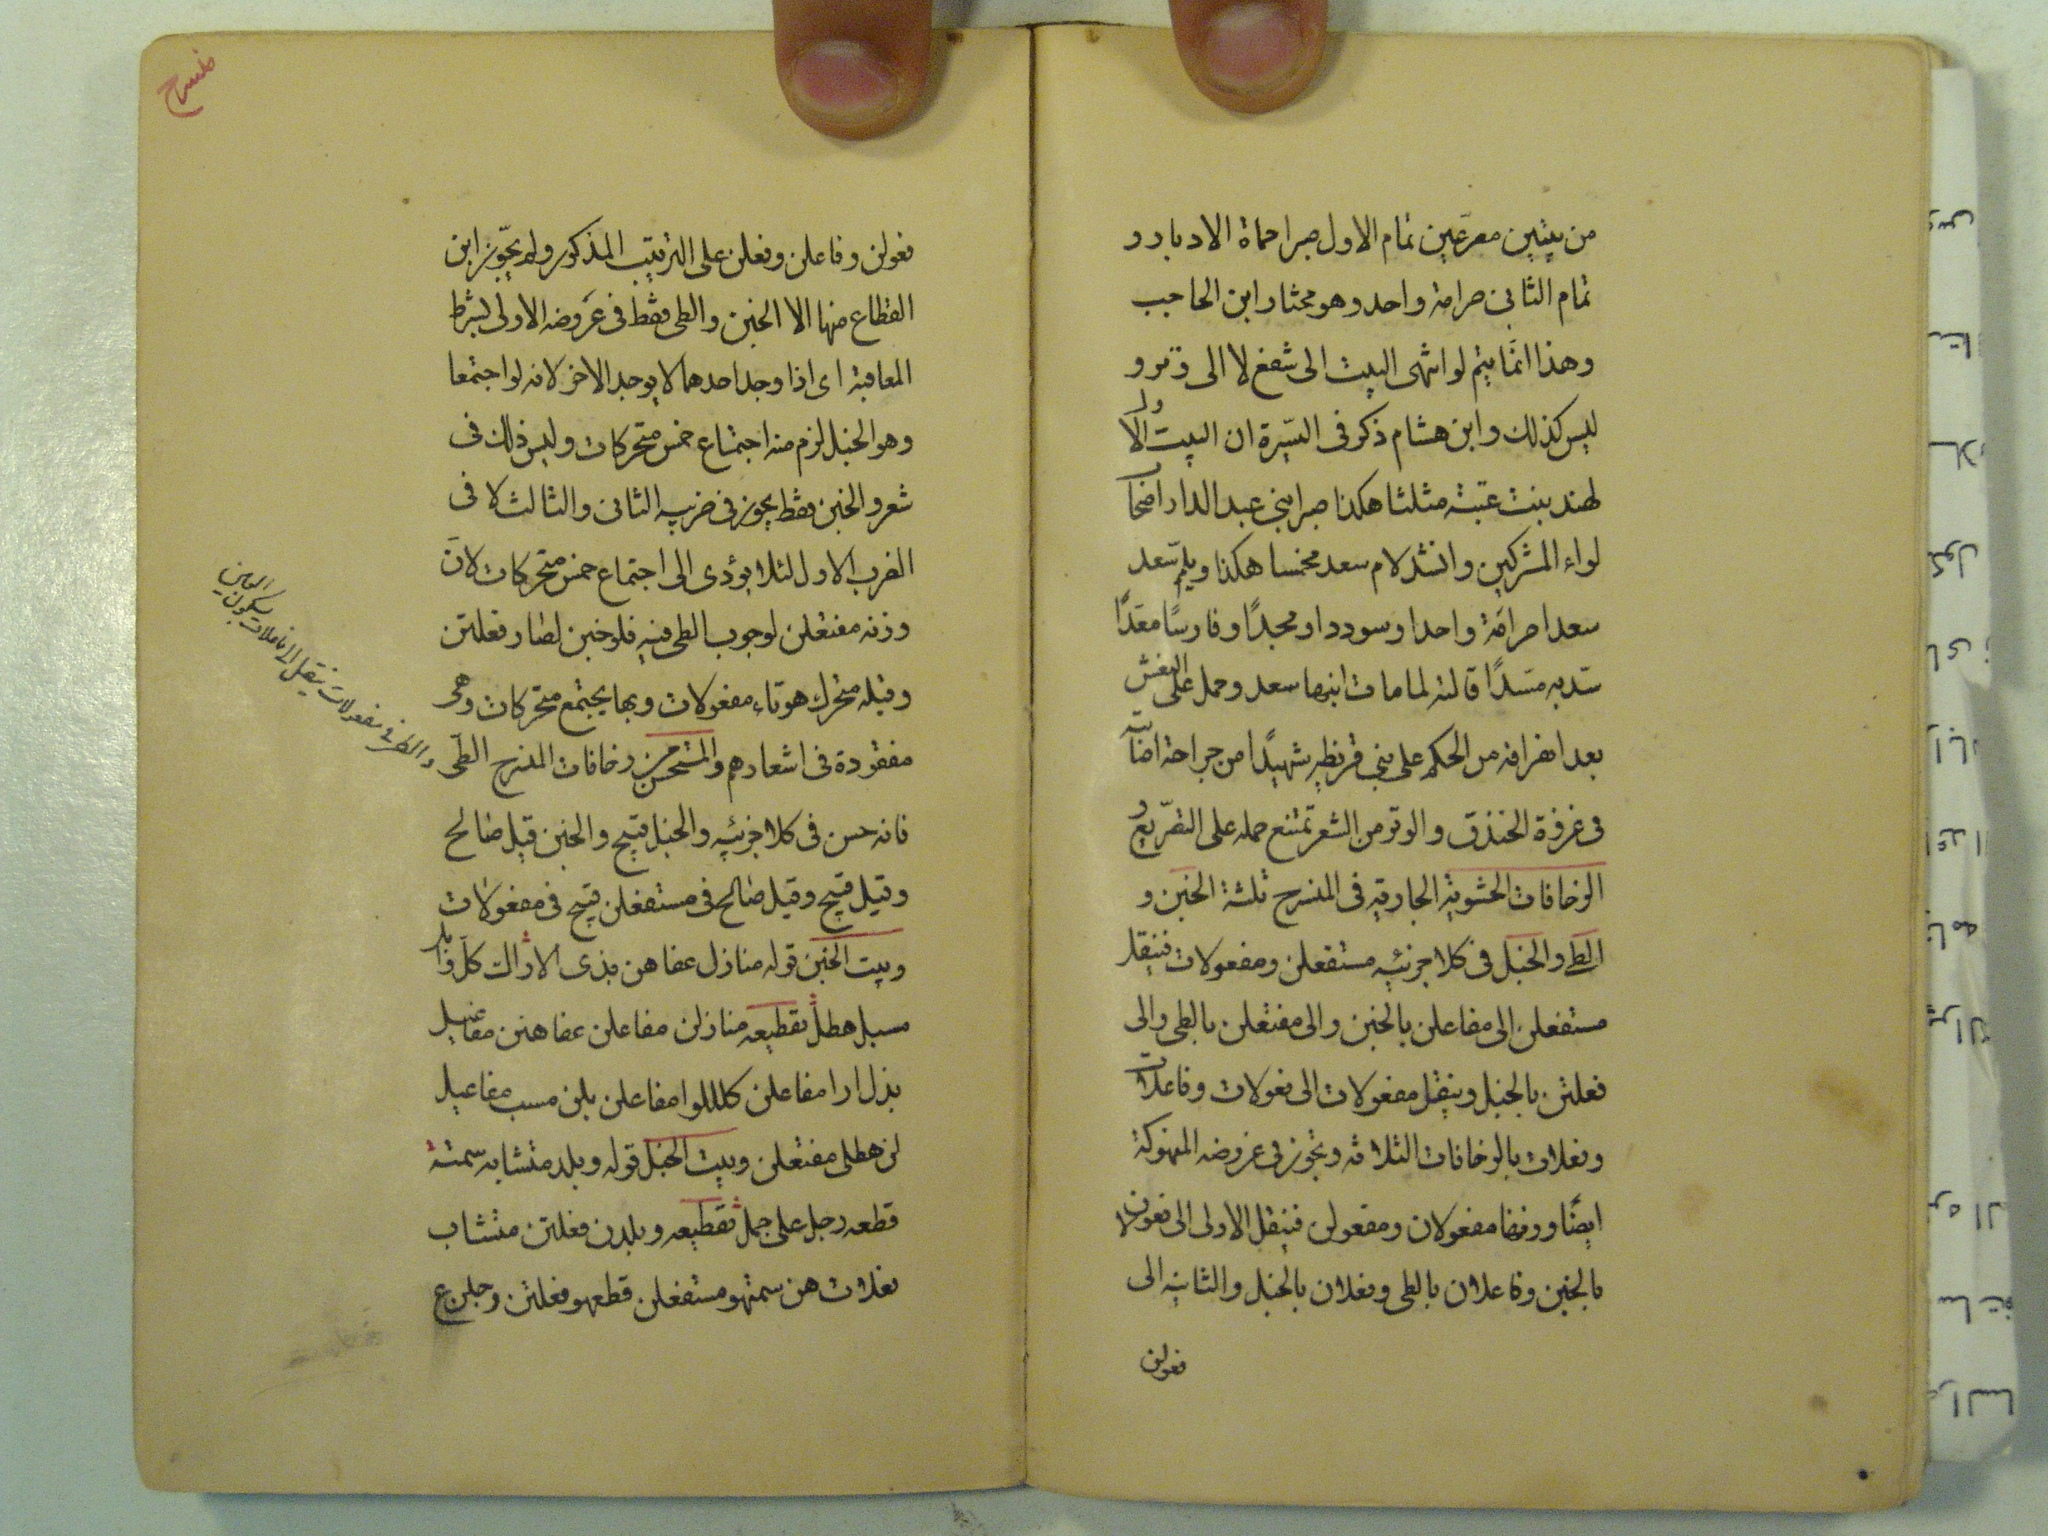 من بيتين مصرعين تمام الاول صبرا حماة الادبار و
تمام الثانى صرامة واحد وهو مختار ابن الحاجب
وهذا انما يتم لو انتهى البيت الى شفع لا الى وتر و
ليس كذلك وابن هشام ذكر فى السيرة ان البيت الاول
لهند بنت عتبة مثلثا هكذا صبرا بنى عبد الدار
لواء المشركين وانشد لام سعد مخمسا هكذا ويلم سعد
سعدا صرامة واحدا وسوددا ومجدا وفارسا معدا
سد به مسدا قالته لما مات ابنها سعد وحمل على النعش
بعد انصرافه من الحكم على بنى قريظه شهيدا من جراحة اصابته
فى غزوة الخندق والوتر من الشعر تمتنع حمله على التصريع
الزحافات الحشوية الجارية فى المنسرح ثلثة الخبن و
الطى والخبل فى كلا جزئيه مستفعلن ومفعولات فينقل
مستفعلن الى مفاعلن بالخبن والى مفتعلن بالطى والى
فعلتن بالخبل وينقل مفعولات الى فعولات وفاعلات
وفعلات بالزحافات الثلاثة وتجوز فى عروضه المنهوكة
ايضا ووزنها مفعولان ومفعولن فينقل الاولى الى فعولان
بالخبن وفاعلان بالطى وفعلان بالخبل والثانيه الى
فعولن
منسرح
فعولن وفاعلن وفعلن على الترتيب المذكور ولم يجوز ابن
القطاع منها الا الخبن والطى فقط فى عروضه الاولى بشرط
المعاقبة اى اذا وجد احدهما لا يوجد الاخر لانه لو اجتمعا
وهو الخبل لزم منه اجتماع خمس متحركات وليس ذلك فى
شعر والخبن فقط يجوز فى ضربه الثانى والثالث لا فى
الضرب الاول لئلا يؤدى الى اجتماع خمس متحركات لان
وزنه مفتعلن لوجوب الطى فيه فلو خبن لصار فعلتن
وقبله متحرك هو تاء مفعولات وبها يجتمع متحركات وهى
مفقودة فى اشعارهم والمستحسن من زحافات المنسرح الطى
فانه حسن فى كلا جزئيه والخبل قبيح والخبن قيل صالح
وقيل قبيح وقيل صالح فى مستفعلن قبيح فى مفعولات
وبيت الخبن قوله منازل عفاهن بذى الاراك كل وابل
مسبل هطل تقطيعه منازلن مفاعلن عفاهنن مفاعيل
بذل ارا مفاعلن كلللوا مفاعلن بلن مسب مفاعيل
لن هطلى مفتعلن وبيت الخبل قوله وبلد متشابه سمته
قطعه رجل على جمل تقطيعه وبلدن فعلتن متشاب
فعلات هن سمتهو مستفعلن قطعهو فعلتن رجلن ع
والطى فى مفعولات ينقل الى فاعلات بسكون العين